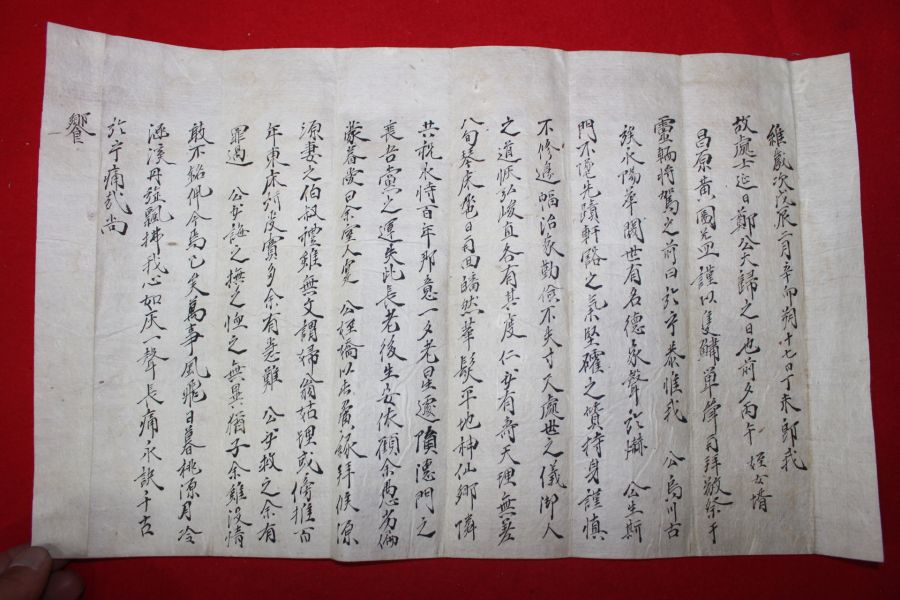 維歲次戊辰二月辛卯朔十七日丁未郎我
故處士延日鄭公天歸之日也前夕丙午 姪女壻
昌原黃 謹以隻鷄單觶哭拜敬祭于
靈輀將駕之前曰於乎恭惟我 公烏川古
族永陽華閥世有名德家聲於赫 公生斯
門不隱先蹟軒豁之氣堅確之質持身謹愼
不修邊幅治家勤儉不失寸尺處世之儀御人
之道恢弘峻直各有其度仁必有壽天理無差
八旬琴床 日 回皤然華髮平地神仙鄕隣
共祝永恃百年那意一夕老星遽隕德門之
喪吾黨之運失此長老後生安依顧余愚劣偏
蒙眷愛曰余室人寔 公姪嬌以吉 拜候源
源妻之伯叔禮雖無文謂婦翁姑理或傍推百
年東床 皮實多余有患難 公必救之余有
罪過 公必誨之撫之恤之無異猶子余雖沒情
敢不銘佩今焉已矣萬事風飛日暮桃源月冷
涵溪丹旐飄拂我心如灰一聲長痛永訣千古
於乎痛哉尙
饗